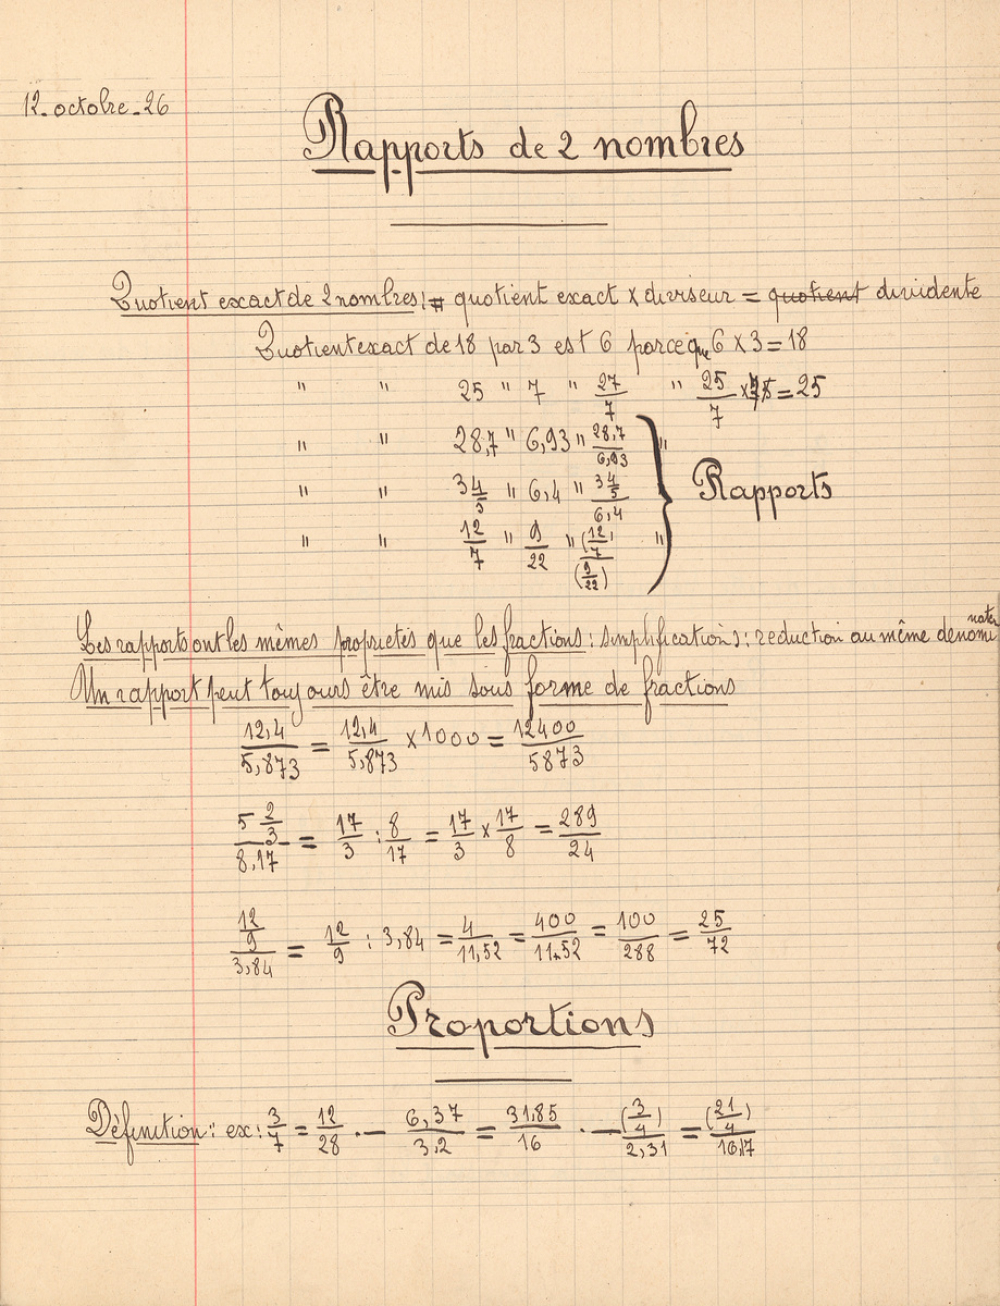 12. octobre. 26
Rapports de 2 nombres
Quotient exact de 2 nombres : = quotient exact x diviseur = quotient dividente
Quotient exact de 18 par 3 est 6 parce que 6 x 3 = 18
" " 25 " 7 " 27/7 " 25/7 x 7 = 25
" " 28,7 " 6,93 " 28,7/6,93 "
" " 3 4/5 " 6,4 " 3 4/5/6,4 "
" " 12/7 " 9/22 " (12/7)/(9/22) "
Rapports
Les rapports ont les mêmes proprietés que les fractions : simplifications ; reduction au même denominateu
Un rapport peut toujours être mis sous forme de fractions
12,4/5,873 = 12,4/5,873 x 1000 = 12400/5873
5 2/3/8,17 = 17/3 : 8/17 = 17/3 x 17/8 = 289/24
12/9/3,84 = 12/9 : 3,84 = 4/11,52 = 400/11.52 = 100/288 = 25/72
Proportions
Définition : ex : 3/7 = 12/28 . — 6,37/3,2 = 31.85/16 . — (3/4)/2,31 = (21/4)/16,17